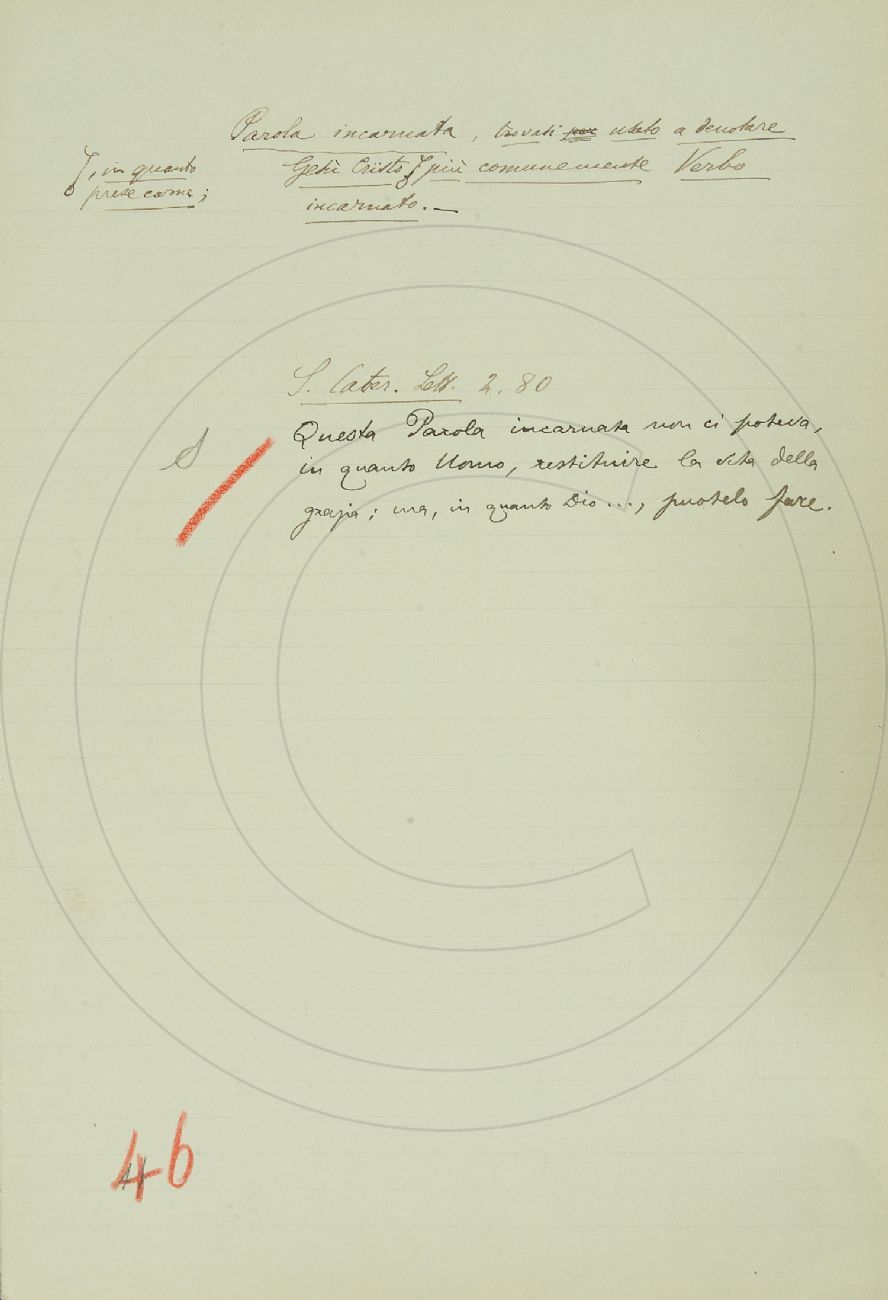 Parola incarnata, trovasi per usato a denotare
, in quanto
prese carne;
Gesù Cristo più comunemente Verbo
incarnato. —
S. Cater. Lett. 2. 80
Questa Parola incarnata non ci poteva,
in quanto Uomo, restituire la vita della
grazia; ma, in quanto Dio ..., puotelo fare.
46